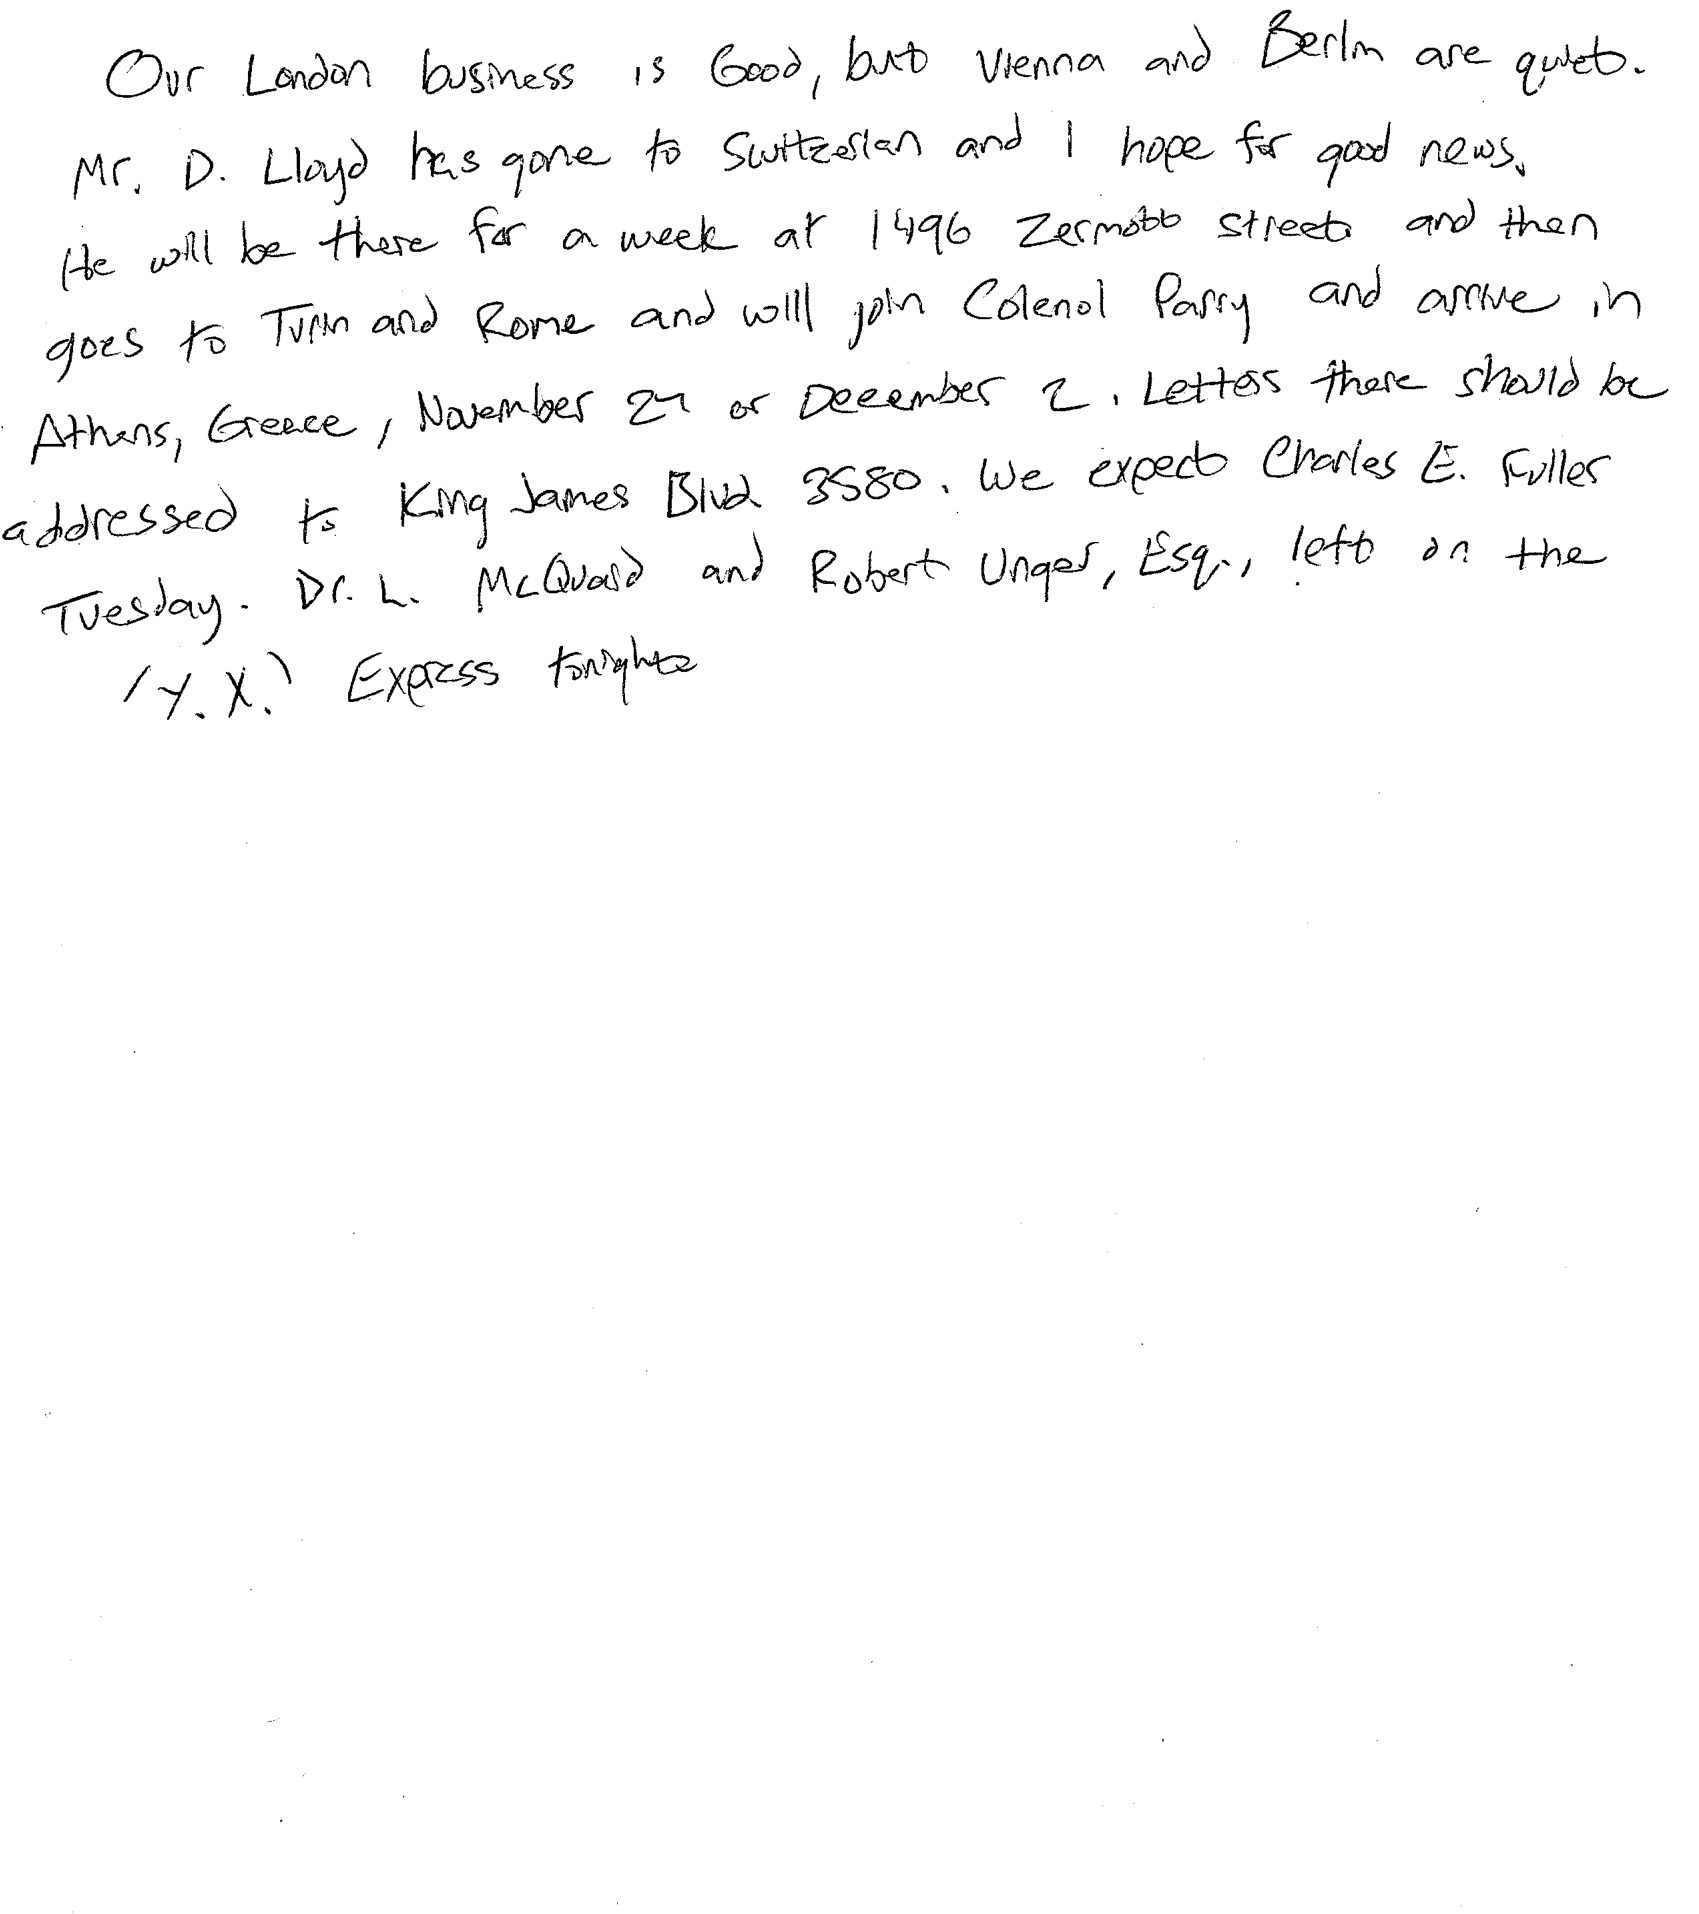 Our London business is Good, but Vienna and Berlin are quiet.
Mr. D. Lloyd has gone to Switzerlan and I hope for good news.
He will be there for a week at 1496 Zermott street and then
goes to Turin and Rome and will join Colenol Parry and arrive in
Athens, Greece, November 27 or December 2. Letters there should be
addressed to King James Blvd 3580. We expect Charles E. Fuller
Tuesday. Dr. L. McQuaid and Robert Unger, Esq., left on the
'Y.X.' Express tonight